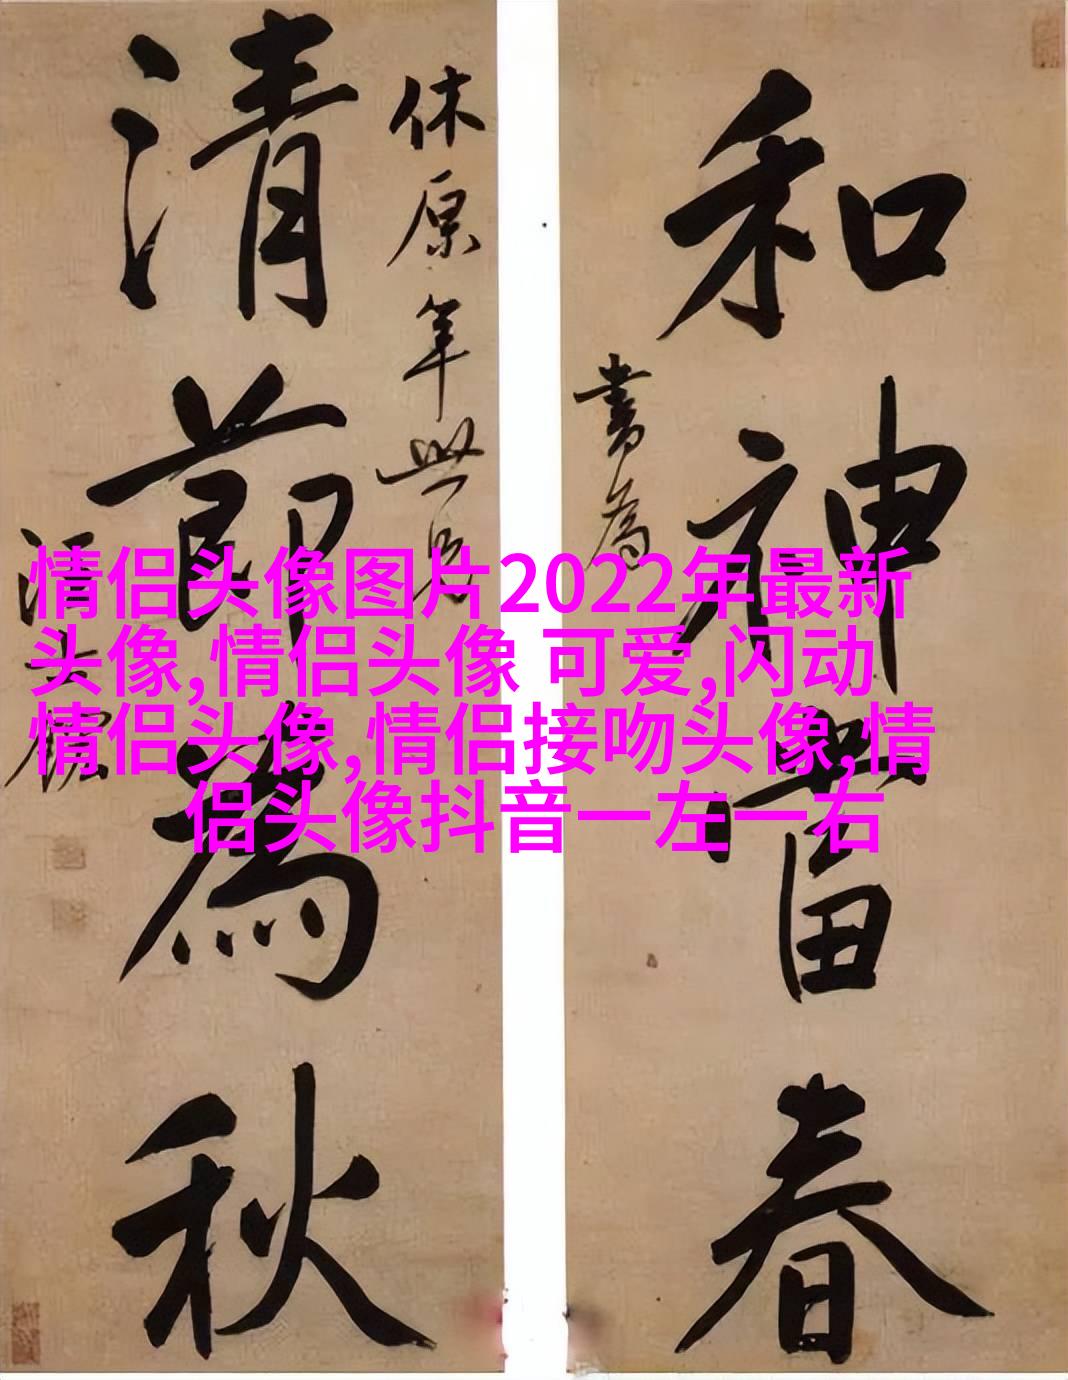 和神當春
書為
休原年世兄
清節為秋
汪士鋐
情侣头像图片2022年最新
头像,情侣头像 可爱,闪动
情侣头像,情侣接吻头像,情
侣头像抖音一左一右